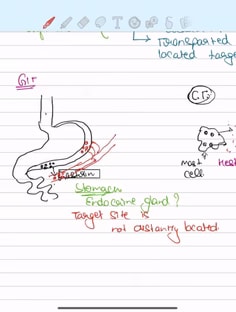 Transported
located targe
GIT
C.T.
Mast
cell
Gastrin
Stomach
Endocrine gland?
Target site is
not distantly located